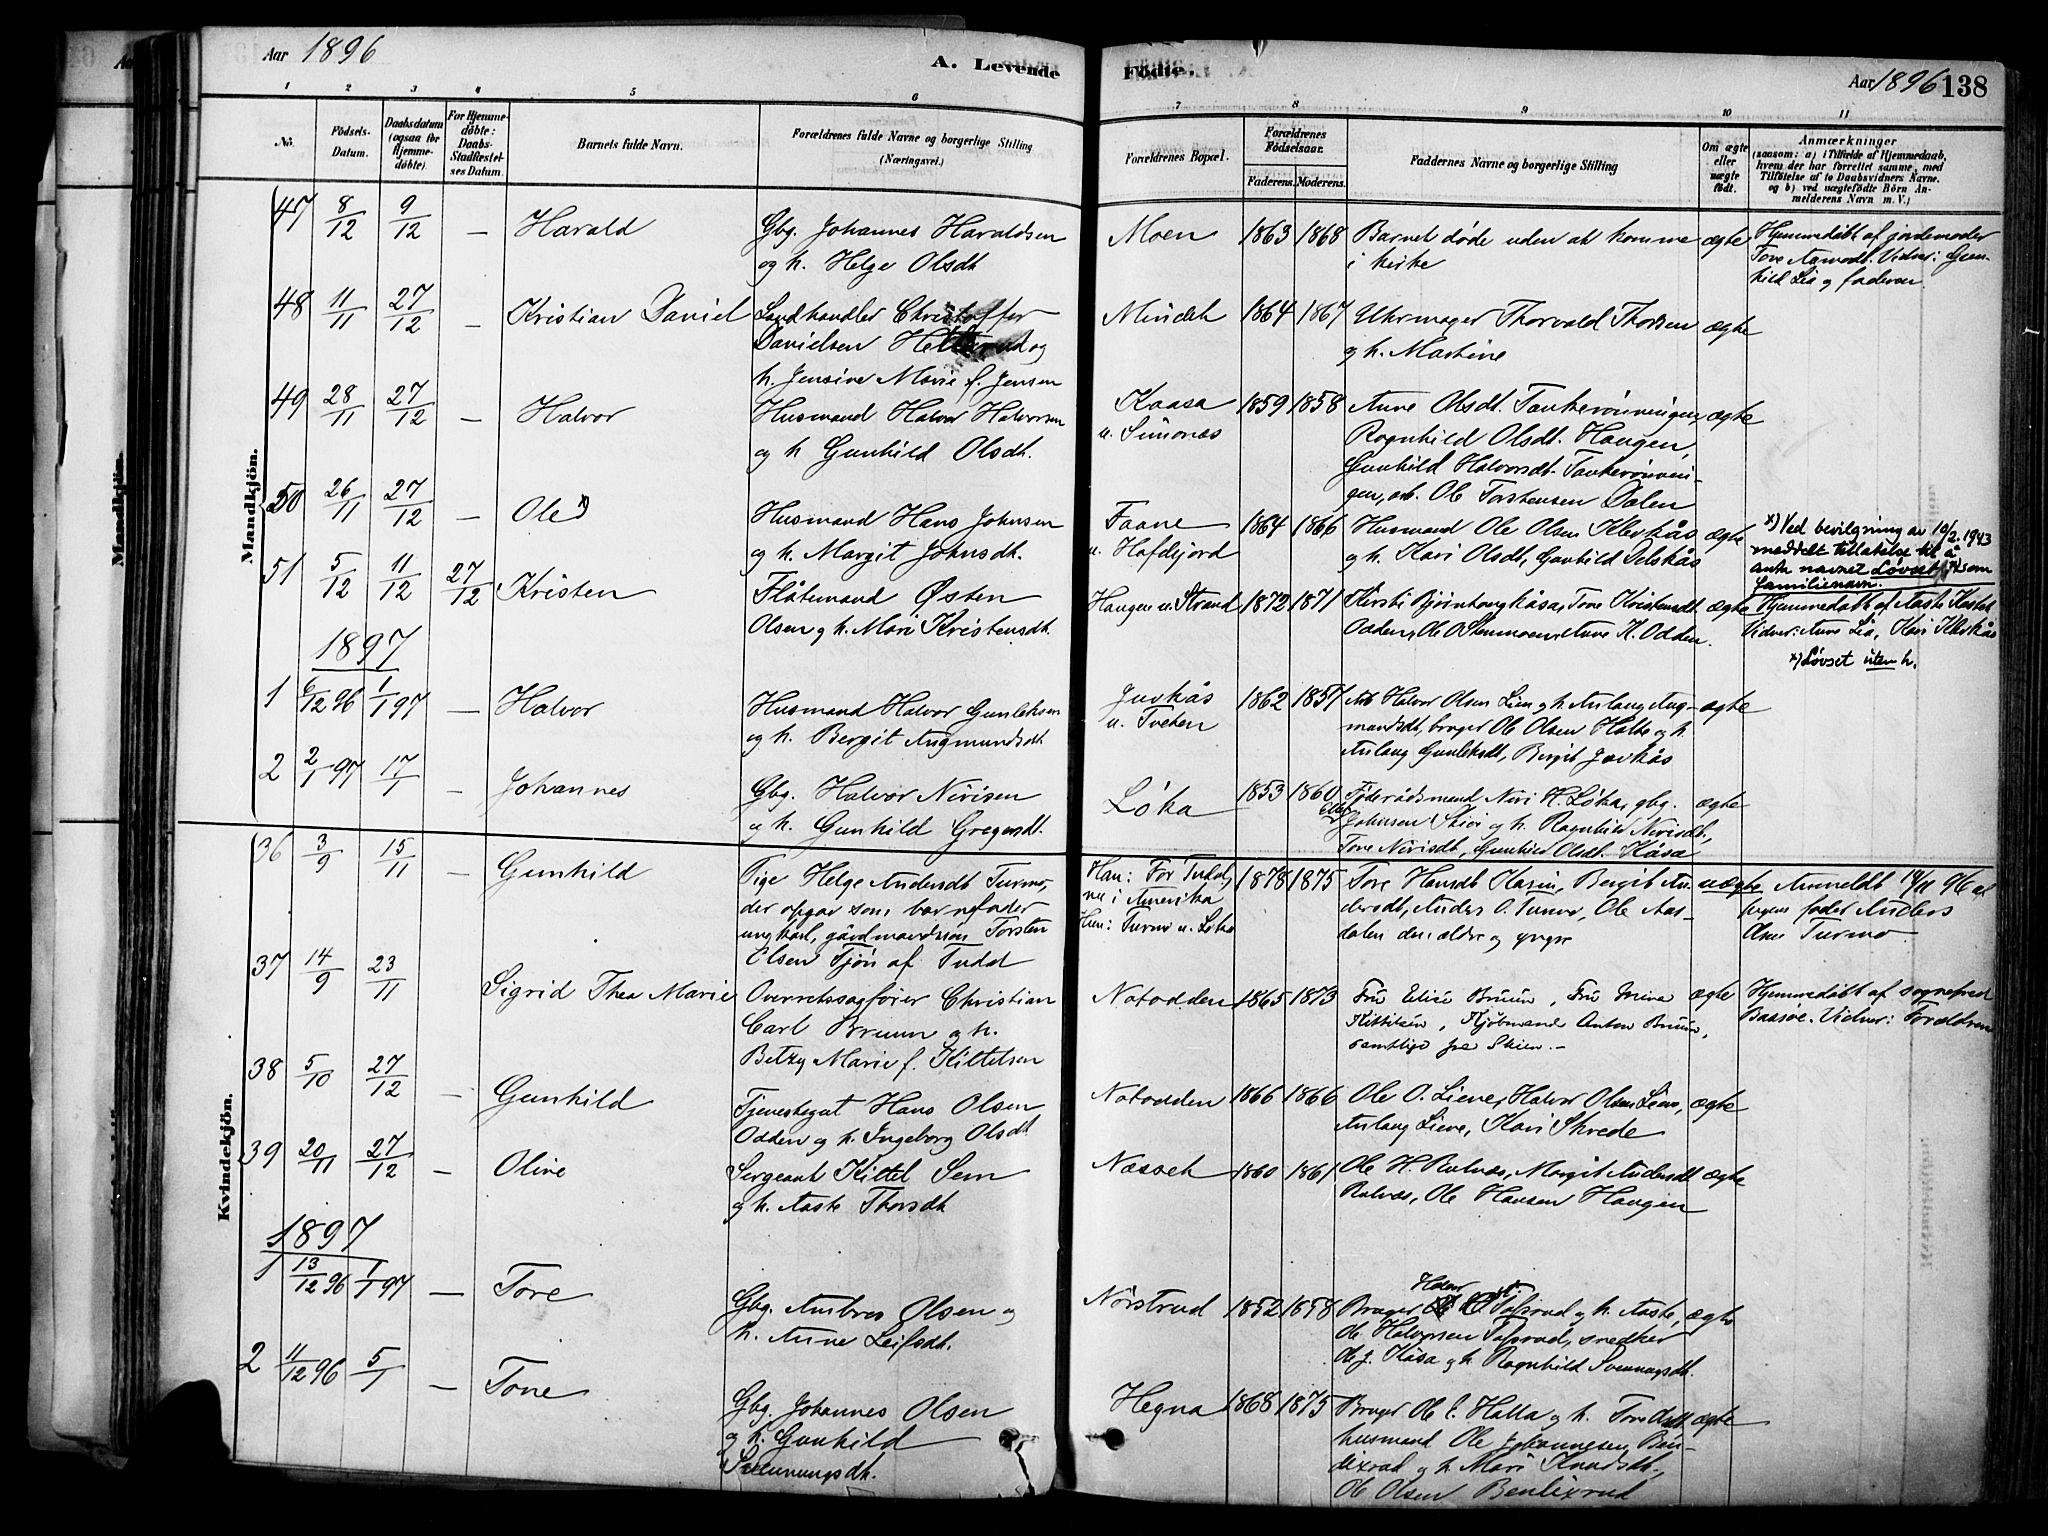 Aar 1896
A. Levende
Fødte.
Aar 1896
138
1 2 3 4 5 6 7 8 9 10 11
No.
Fødsels-
Datum.
Daabsdatum
(ogsaa for
Hjemme-
døbte).
For Hjemme-
døbte:
Daabs-
Stadfæstel-
ses Datum.
Barnets fulde Navn.
Forældrenes fulde Navne og borgerlige Stilling
(Næringsvei).
Forældrenes Bopæl.
Forældrenes
Fødselsaar.
Faderens. Moderens.
Faddernes Navne og borgerlige Stilling
Om ægte
eller
uægte
født.
Anmærkninger
(saasom: a) i Tilfælde af Hjemmedaab,
hvem der har forrettet samme, med
Tilføielse af to Daabsvidners Navne,
og b) ved uægtefødte Börn An-
melderens Navn m. V.)
Mandkjön.
47 8/12 9/12 — Harald
Gbg. Johannes Haraldsen
og h. Helge Olsdt.
Moen 1863 1868
Barnet døde uden at komme
i kirke
ægte
Hjemmedøbt af jordemoder
Tore Aamodt. Vidner: Gun-
hild Lia og faderen
48 11/11 27/12 — Kristian Daniel
Landhandler Christoffer
Davielsen
h. Jensine Marie f. Jensen
Mindet 1864 1867
Uhrmager Thorvald Thorsen
og h. Martine
ægte
49 28/11 27/12 — Halvor
Husmand Halvor Halvorsen
og h. Gunhild Olsdt.
Kaasa
u. Semonæs
1859 1858
Anne Olsdt.
Ragnhild Olsdt. Haugen,
Gunhild Halvorsdt.
gen, arb. Ole Torstensen Dalen
ægte
50 26/11 27/12 — Ole x)
Husmand Hans Johnsen
og h. Margit Johnsdt.
Faane
u. Hafdejord
1864 1866
Husmand Ole Olsen Klevkås
og h. Kari Olsdt, Gunhild Selskås
ægte
x) Ved bevilgning av 10/2.1943
meddelt tillatelse til å
anta navnet Løvset x) som
familienavn.
51 5/12 11/12 27/12 Kristen
Flåtemand Østen
Olsen og h. Mari Kristensdt.
Haugen u. Strand 1872 1871
Kirsti Bjørnhaugkåsa, Tone Kristensdt.
Odden, Ole O. Stenmoen, Anne K. Odden.
ægte
Hjemmedøbt af Aaste Kaste
Vidner: Anne Lia, Kari Klevkås
x) Løvset uten h.
1897
1 6/12 96 1/1 97 — Halvor
Husmand Halvor Gunleksen
og h. Bergit Augmundsdt
Juvkås
u. Tveten
1862 1857
Arb Halvor Olsen Lien og h. Anlaug Aug-
mundsdt, bruger Ole Olsen Holte og h.
Anlaug Gunleksdt, Bergit Juvkås
ægte
2 2/1 97 17/1 — Johannes
Gbg. Halvor Nirisen
og h. Gunhild Gregersdt.
Løka 1853 1860
Føderådsmand Niri H. Løka, gbg.
Johnsen Skiri og h. Ragnhild Nirisdt,
Tone Nirisdt, Gunhild Olsdt. Kåsa
ægte
Kvindekjön.
36 3/9 15/11 Gunhild
Pige Helge Andersdt Turmo,
der opgav som barnefader
ungkarl, gårdmandssøn Torsten
Olsen Tjøn af Tudd
Han: For Tudd,
nu i Amerika
Hun: Turmo u. Løka
1878 1875
Tore Hansdt Kasin, Bergit An-
dersdt, Anders O. Turmo, Ole Aas-
dalen den ældre og yngre
uægte
Anmeldt 14/11 96 af
pigens fader Anders
Olsen Turmo.
37 14/9 23/11 Sigrid Thea Marie
Overretssagfører Christian
Carl Bruun og h.
Betzy Marie f. Kittelsen
Notodden 1865 1873
Fru Elise Bruun, Fru Mina
Kittilsen, Kjøbmand Anton Bruun,
samtlige fra Skien.—
ægte
Hjemmedøbt af sognepræst
Baasøe. Vidner: Forældrene
38 5/10 27/12 — Gunhild
Tjenestegut Hans Olsen
Odden og h. Ingeborg Olsdt
Notodden 1866 1866
Ole O. Liene, Halvor Olsen Liene,
Anlaug Liene, Kari Skrede
ægte
39 20/11 27/12 — Oline
Sergeant Kittel Sem
og h. Aaste Thorsdt
Næsset 1860 1861
Ole H. Rolnæs, Margit Andersdt
Rolnæs, Ole Hansen Haugen
ægte
1897
1 13/12 96 1/1 97 — Tore
Gbg. Ambros Olsen og
h. Anne Leifsdt.
Nørstrud 1852 1858
Bruger Halvor Tofsrud og h. Aaste,
Ole Halvorsen Tofsrud, snedker
Ole J. Kåsa og h. Ragnhild Svenungsdt.
ægte
2 11/12 96 5/1 — Tone
Gbg. Johannes Olsen
og h. Gunhild
Svenningsdt.
Hegna 1868 1875
Bruger Ole E. Halla og h. Tone Olsdt,
husmand Ole Johannesen Ben-
dixrud og h. Mari Knudsdt.,
Ole Olsen Bendixrud
ægte